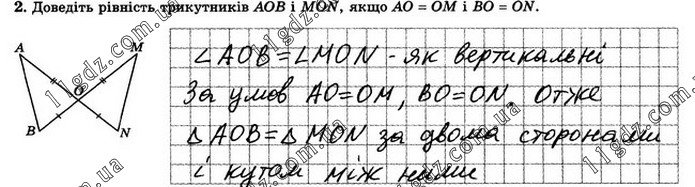 2. Доведіть рівність трикутників AOB і MON, якщо AO = OM і BO = ON.
A M
O
B N
∠AOB=∠MON - як вертикальні
За умов AO=OM, BO=ON. Отже
△AOB=△MON за двома сторонами
і кутом між ними
11gdz.com.ua